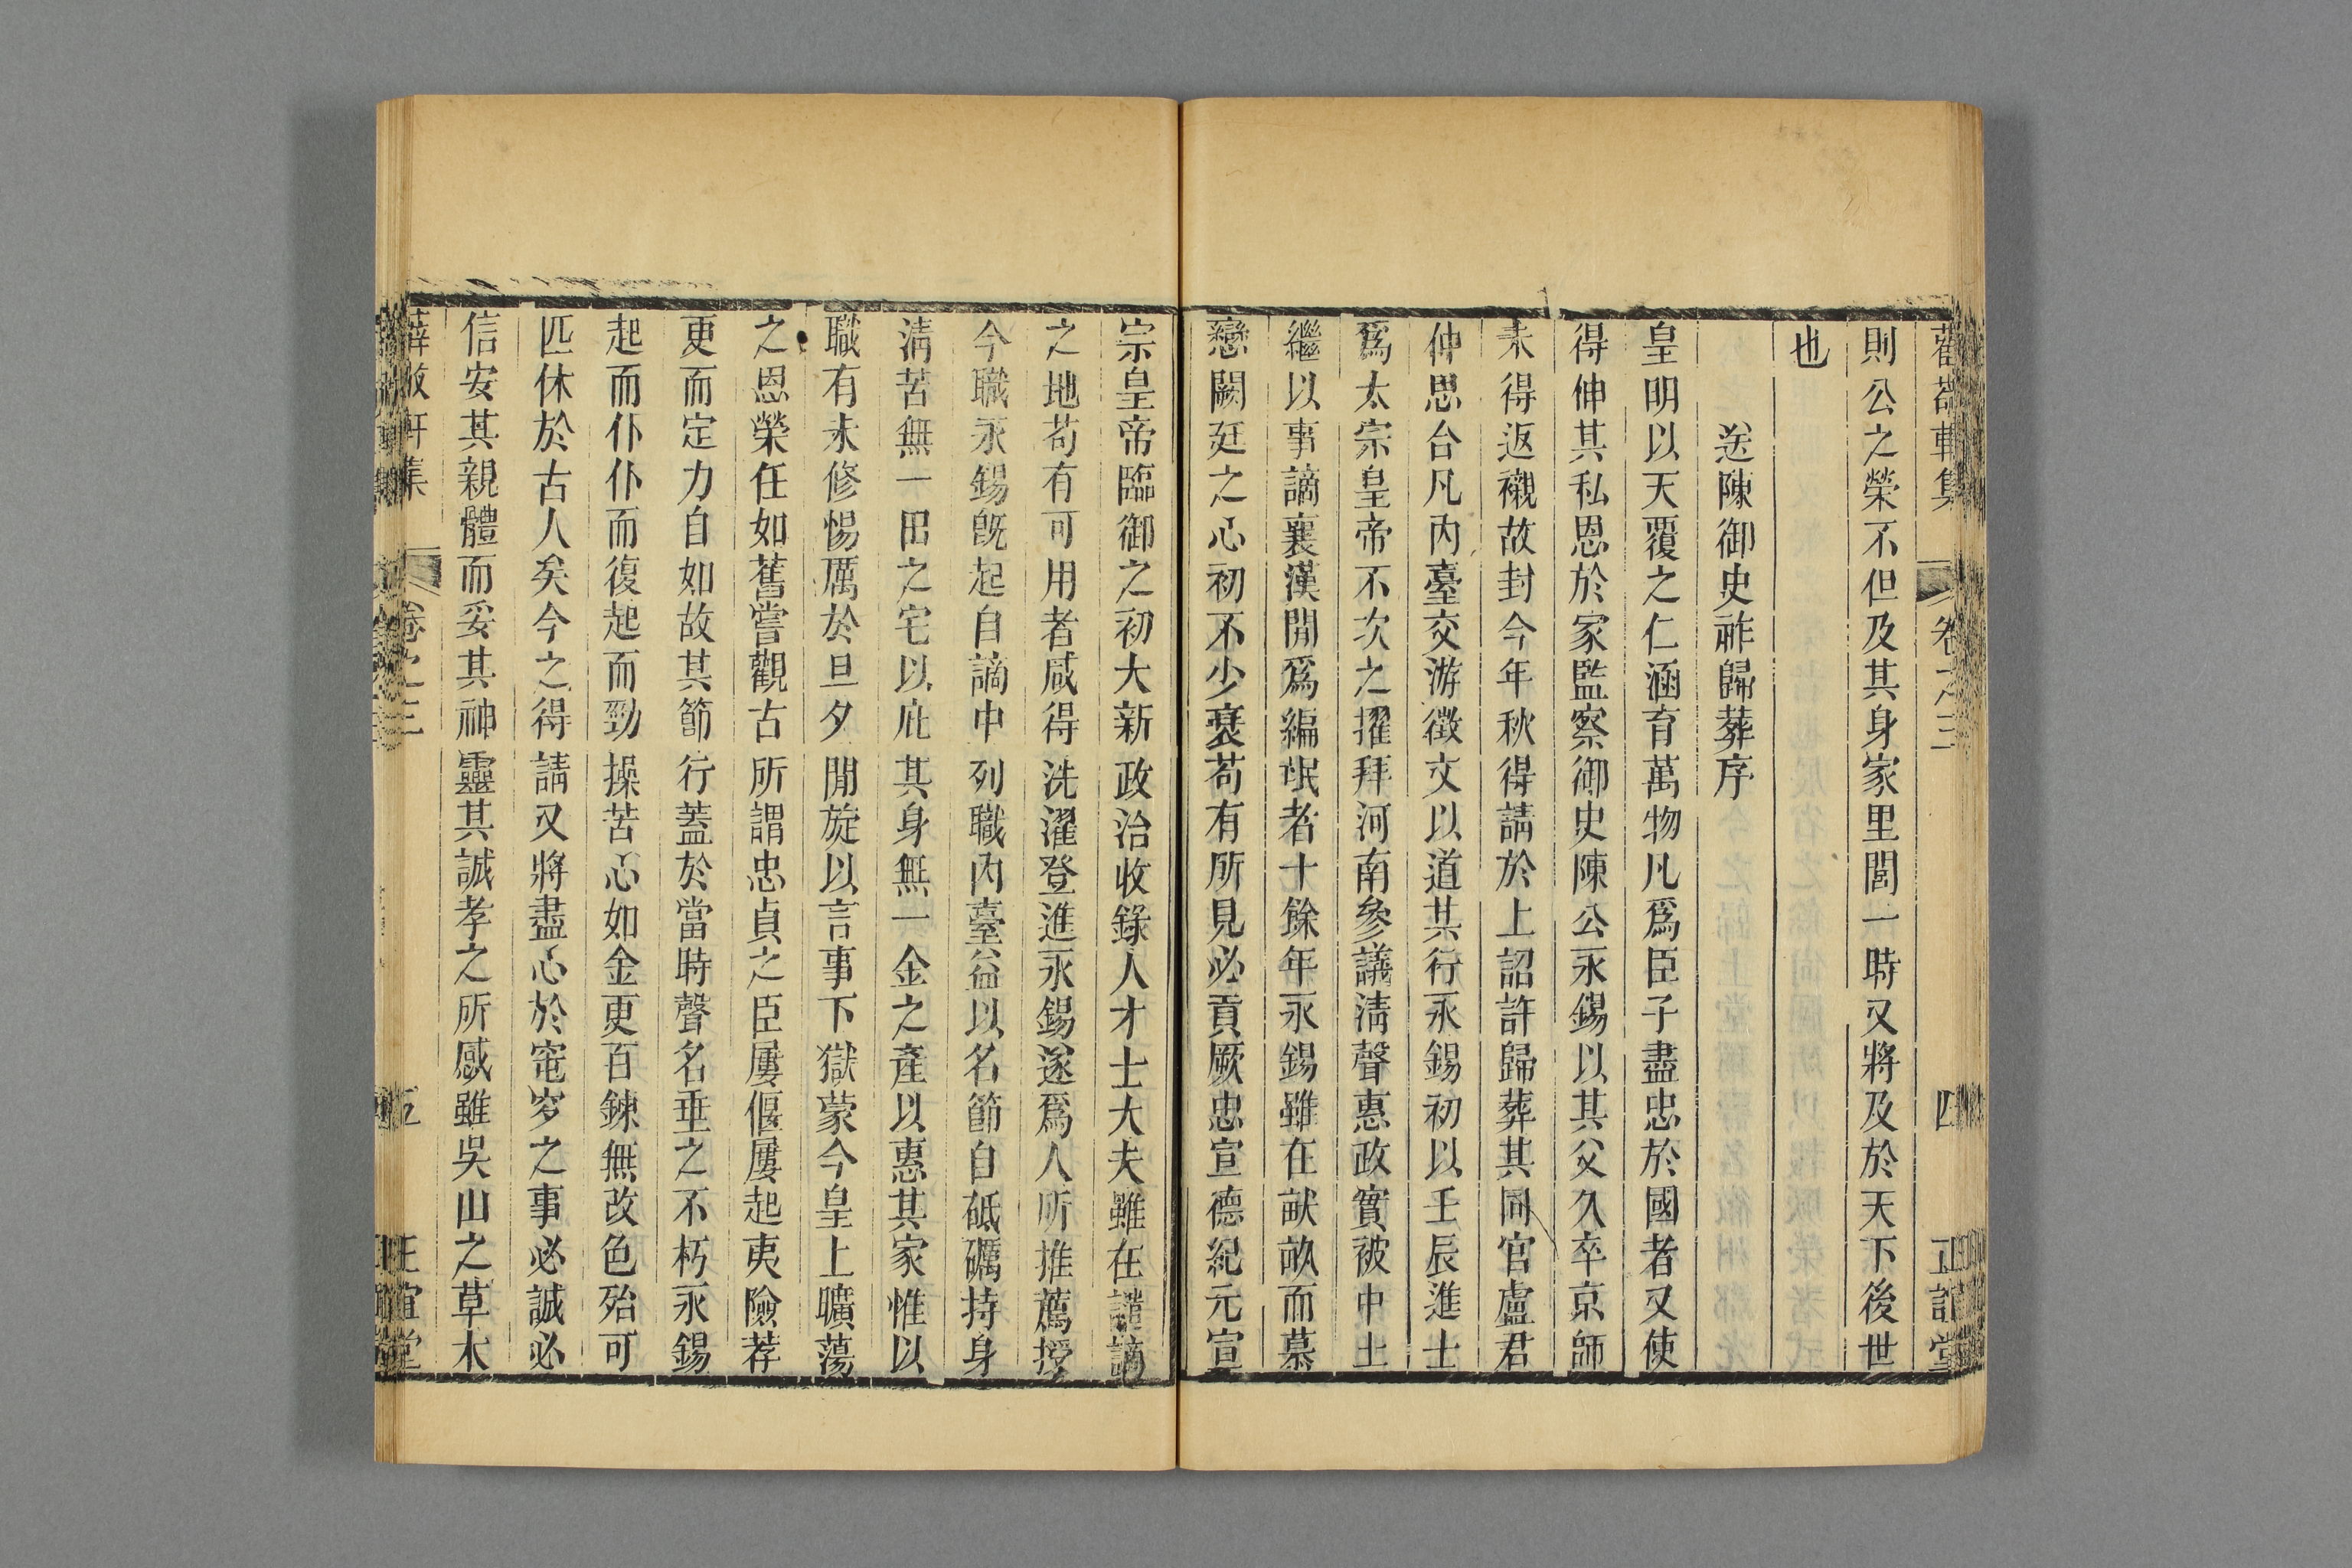 則公之榮不但及其身家里閭一時又將及於天下後世
也
送陳御史祚歸葬序
皇明以天覆之仁涵育萬物凡爲臣子盡忠於國者又使
得伸其私恩於家監察御史陳公永錫以其父久卒京師
未得返襯故封今年秋得請於上詔許歸葬其同官盧君
仲思台凡內臺交游徵文以道其行永錫初以壬辰進士
爲太宗皇帝不次之擢拜河南參議淸聲惠政實被中土
繼以事謫襄漢閒爲編氓者十餘年永錫雖在畎畝而慕
戀闕廷之心初不少衰苟有所見必貢厥忠宣德紀元宣
宗皇帝臨御之初大新政治收錄人才士大夫雖在譴謫
之地苟有可用者咸得洗濯登進永錫遂爲人所推薦授
今職永錫旣起自謫中列職內臺益以名節自砥礪持身
淸苦無一田之宅以庇其身無一金之產以惠其家惟以
職有未修惕厲於旦夕閒旋以言事下獄蒙今皇上曠蕩
之恩榮任如舊嘗觀古所謂忠貞之臣屢偃屢起夷險荐
更而定力自如故其節行蓋於當時聲名垂之不朽永錫
起而仆仆而復起而勁操苦心如金更百鍊無改色殆可
匹休於古人矣今之得請又將盡心於窀穸之事必誠必
信安其親體而妥其神靈其誠孝之所感雖吳山之草木
卷之三
四
五